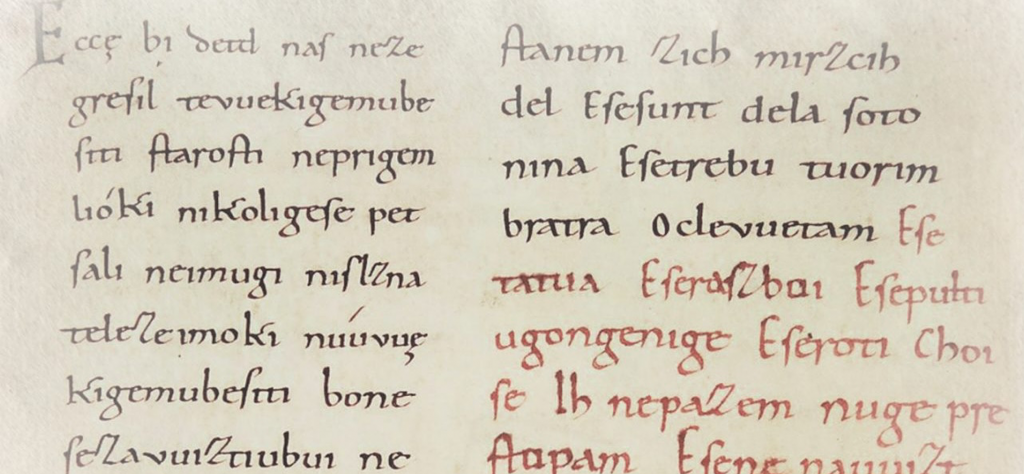 Eccę bi detd naſ neze
greſil tevuekigemube
ſiti ſtaroſti neprigem
lióki nikoligeſe pet
ſali neimugi niſlzna
teleze imoki nuúvvę
kigemubeſiti bone
ſezavuiztiubui ne
ſtanem zich mirzcih
del Eſeſunt dela ſoto
nina Eſetrebu tuorim
bratra Oclevuetam Eſe
tatua Eſerazboi Eſepulti
ugongenige Eſeroti Choi
ſe Ih nepazem nuge pre
ſtopam Eſene nauuizt